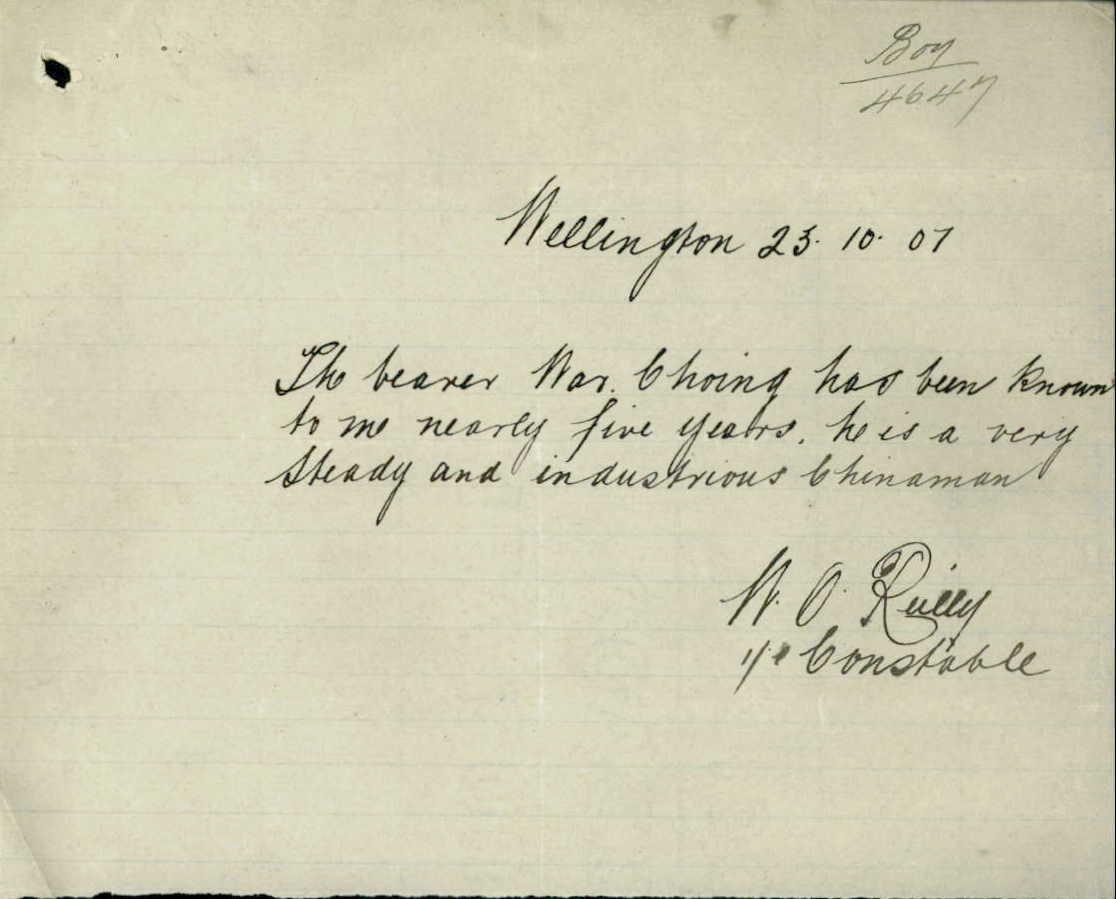 Boy
4647
Wellington 23. 10. 07
The bearer War. Choing has been known
to me nearly five years. he is a very
steady and industrious Chinaman
W. O. Reilly
Constable